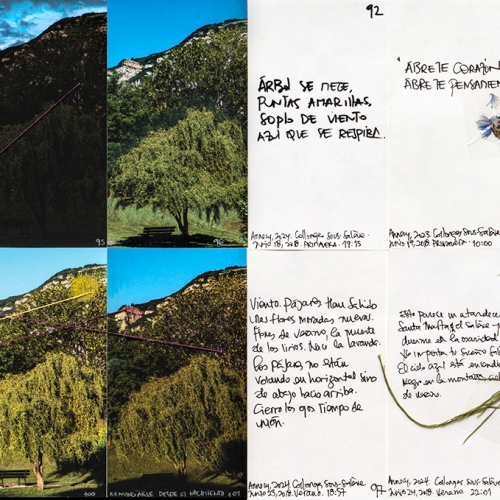 92
ÁRBOL SE MECE,
PUNTAS AMARILLAS,
SOPLO DE VIENTO
AZUL QUE SE RESPIRA.
Annecy, 2024. Collonges Sous-Salève.
Junio 18, 2018. PRIMAVERA. 19:15
ÁBRETE CORAZÓN
ÁBRETE PENSAMIEN
Annecy, 2023. Collonges Sous-Salève
Junio 19, 2018. PRIMAVERA 10:00
95
96
Viento. Pájaros. Han salido
unas flores moradas nuevas.
Flores de verano, la muerte
de los lirios. Nace la lavanda.
Los pájaros no están
volando en horizontal sino
de abajo hacia arriba.
Cierro los ojos. Tiempo de
unión.
Annecy, 2024. Collonges Sous-Salève
Junio 23, 2018. Verano.
97
Esto parece un atardecer
Santa Marta, el Salève
duerme en la
No importa tu
El cielo azul está
negro en la montaña
de verano.
Annecy, 2024. Collonges Sous-Salève
Junio 24, 2018. Verano 22:01
100
DESDE EL NACIMIENTO 101